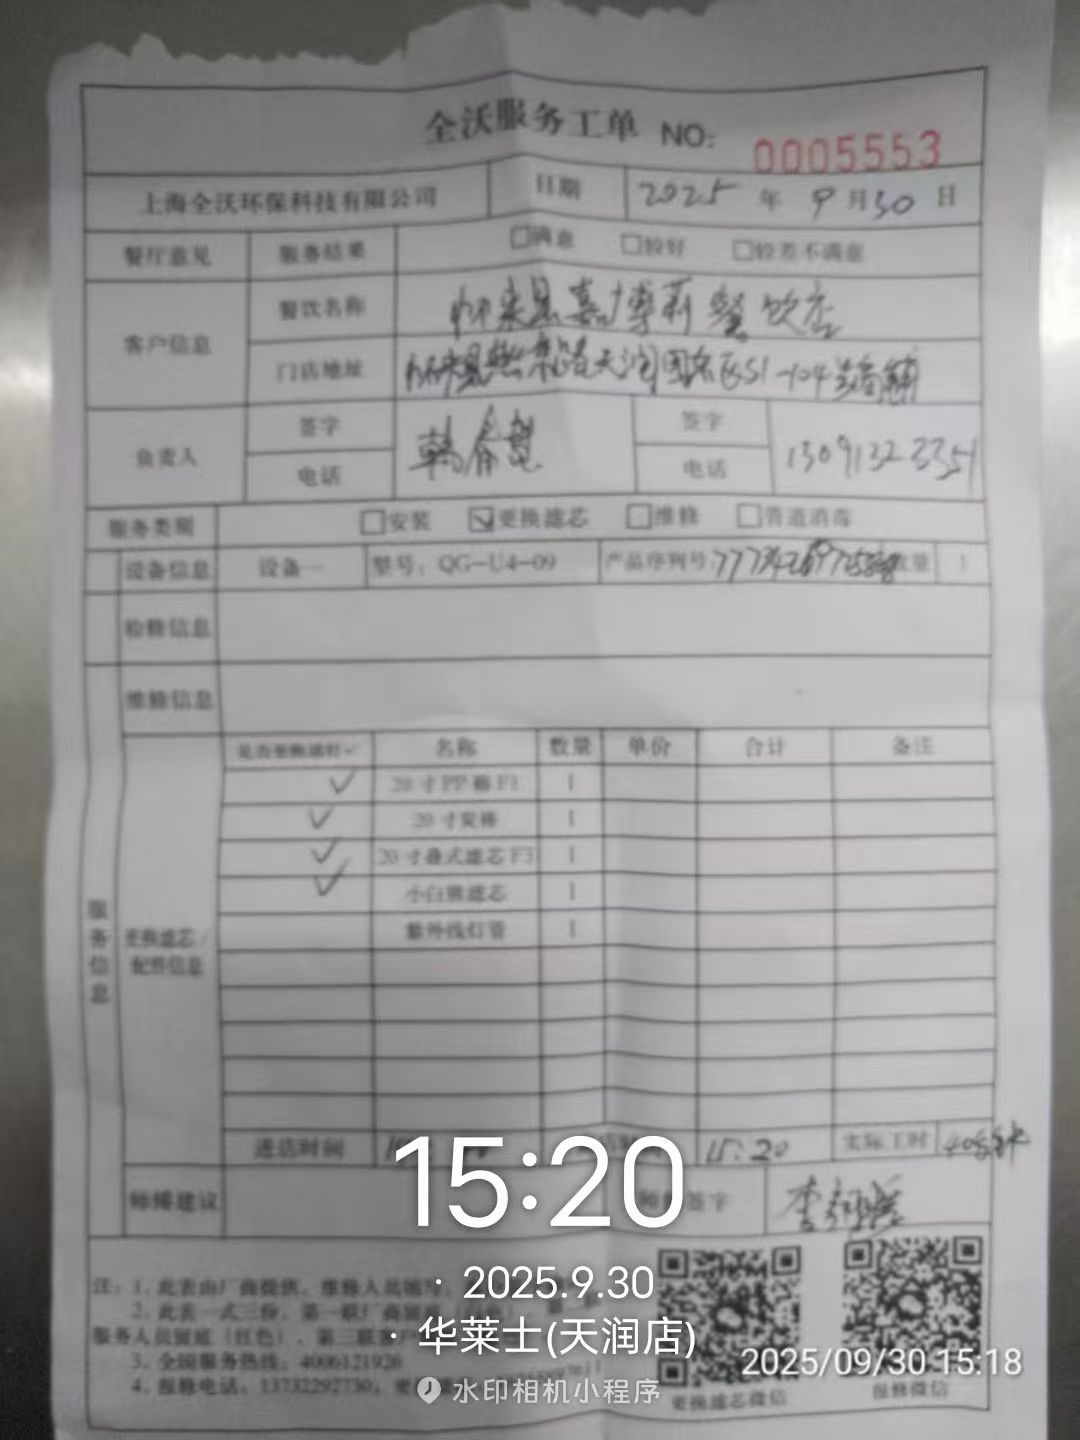 全沃服务工单 NO: 0005553
上海全沃环保科技有限公司 日期 2025 年 9 月 30 日
餐厅意见 服务结果 □满意 □较好 □较差不满意
客户信息 餐饮名称 怀来县嘉博莉餐饮店
门店地址 怀来县 天润国 S1-104
负责人 签字 签字
电话 电话
服务类别 □安装 ☑更换滤芯 □维修 □管道消毒
设备信息 设备一 型号: QG-U4-09 产品序列号: 数量 1
检修信息
维修信息
是否更换请打✓ 名称 数量 单价 合计 备注
✓ 20寸PP棉F1 1
✓ 20寸炭棒 1
✓ 20寸叠式滤芯F3 1
✓ 小白熊滤芯 1
紫外线灯管 1
服务信息
更换滤芯/
配件信息
进店时间 15:20 实际工时 40分钟
师傅建议 签字
注: 1. 此表由厂商提供, 维修人员填写
2. 此表一式三份, 第一联厂商留底
服务人员留底(红色), 第三联
3. 全国服务热线: 4006121926
4. 报修电话: 13732292730,
更换滤芯微信 报修微信
15:20
· 2025.9.30
· 华莱士(天润店)
水印相机小程序
2025/09/30 15:18